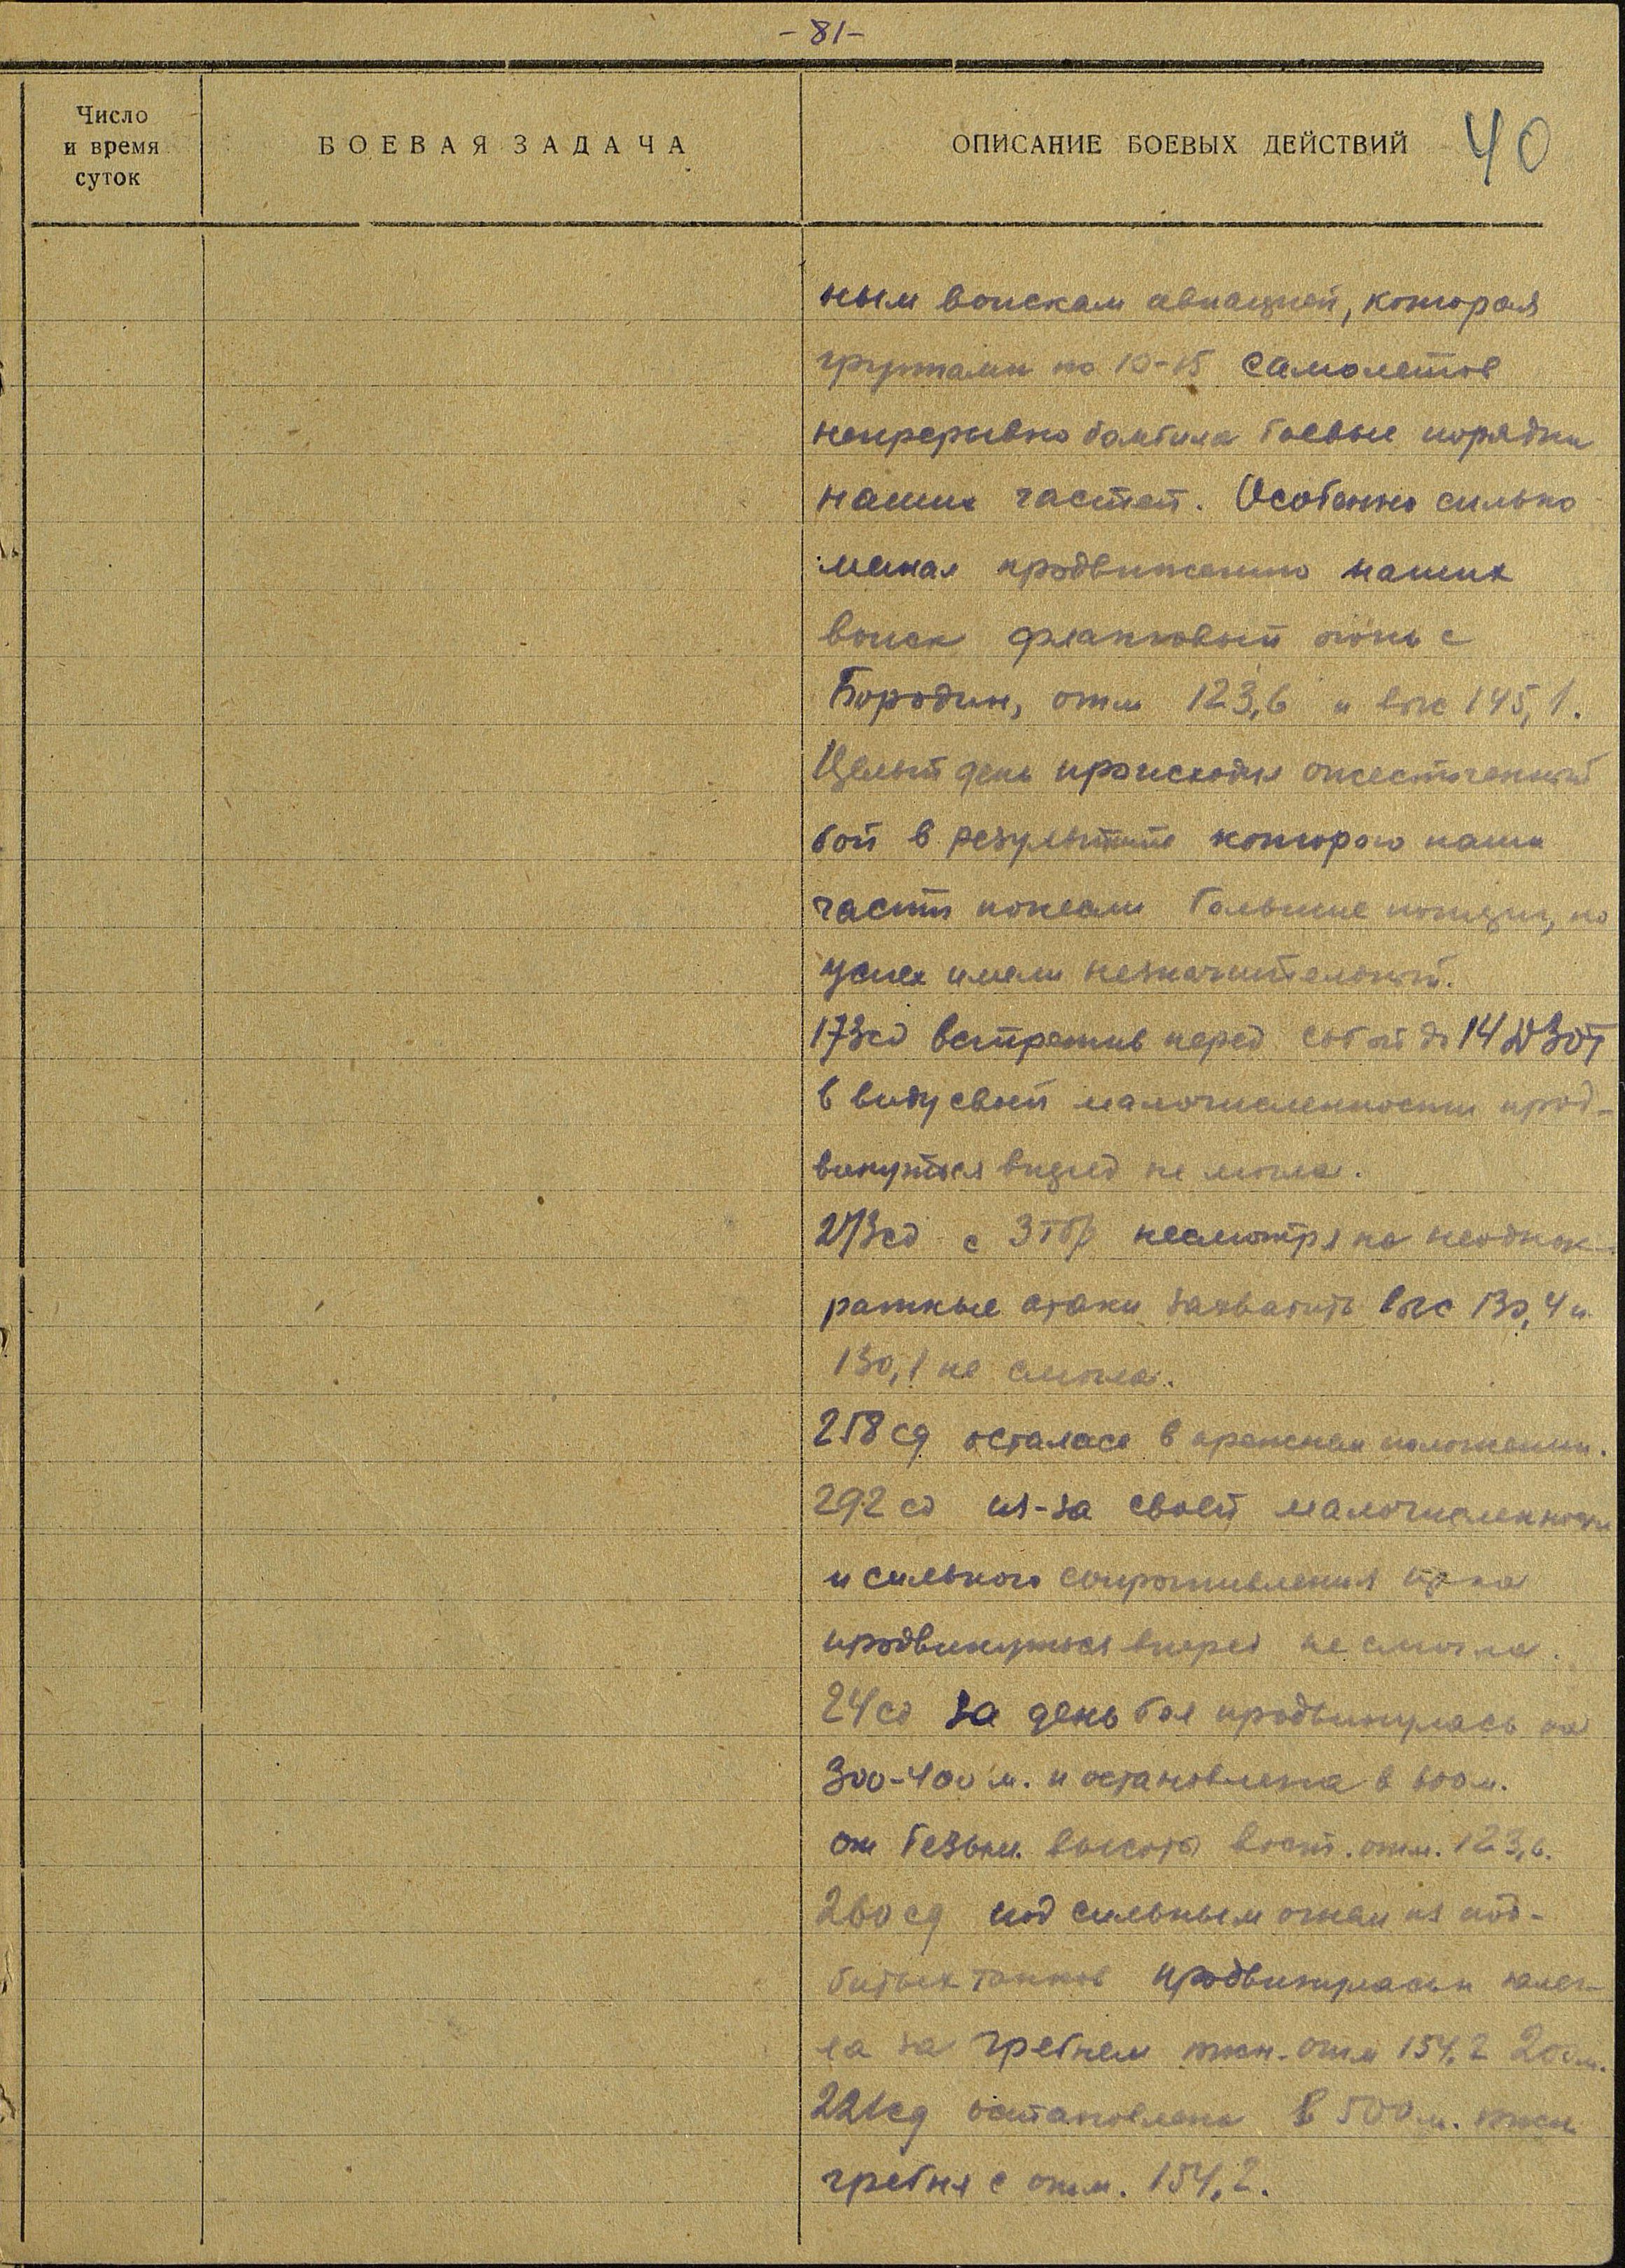 -81-
Число
и время
суток
БОЕВАЯ ЗАДАЧА
ОПИСАНИЕ БОЕВЫХ ДЕЙСТВИЙ
40
ным войскам авиацией, которая
группами по 10-15 самолетов
непрерывно бомбила боевые порядки
наших частей. Особенно сильно
мешал продвижению наших
войск фланговый огонь с
Бородин, отм 123,6 и выс 145,1.
Целый день происходил ожесточенный
бой в результате которого наши
части понесли большие потери, но
успех имели незначительный.
173сд встретив перед собой до 14 ДЗОТ
в виду своей малочисленности прод-
винуться вперед не могла.
273сд с 3тбр несмотря на неоднок-
ратные атаки захватить выс 130,4 и
130,1 не смогла.
258сд осталась в прежнем положении.
292 сд из-за своей малочисленности
и сильного сопротивления пр-ка
продвинуться вперед не смогла.
24сд за день боя продвинулась на
300-400 м. и остановлена в 600м.
от безым. высоты вост. отм. 123,6.
260сд под сильным огнем из под-
битых танков продвинулась и залег-
ла за гребнем южн. отм 154,2 200м.
221сд остановлена в 500 м. южн
гребня с отм. 154,2.